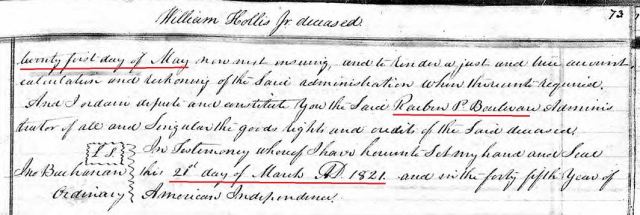 William Hollis Jr deceased.
73
twenty first day of May now next ensuing and to render a just and true account
calculation and reckoning of the Said administration when thereunto required.
And I ordain depute and constitute You the Said Raeben P. Boulware Adminis
trator of all and Singular the goods rights and credits of the Said deceased.
L.S. In Testimony whereof I have hereunto Set my hand and Seal
Jno Buchanan this 21st day of March AD. 1821. and in the forty fifth Year of
Ordinary American Independence.